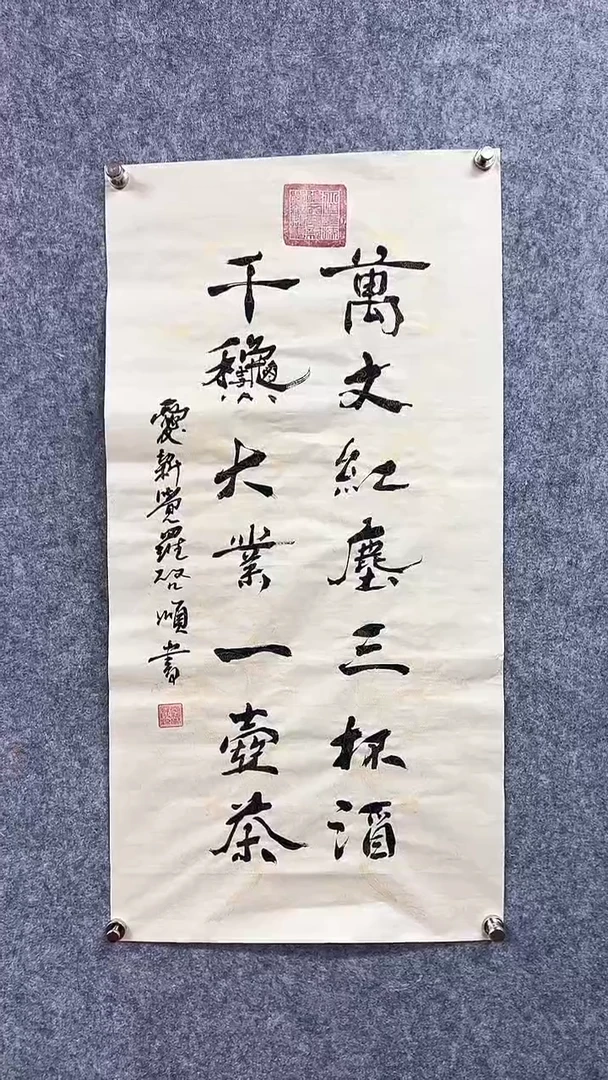 萬丈紅塵三杯酒
千穐大業一壺茶
愛新覺羅啓順書